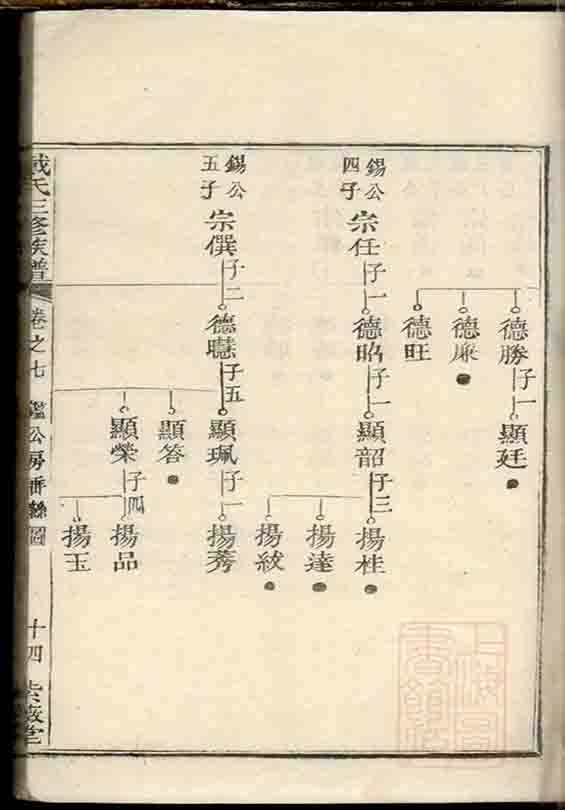 德勝
子一
顯廷
德廉
德旺
錫公
四子
宗任
子一
德昭
子一
顯韶
子三
揚桂
揚達
揚紋
錫公
五子
宗僎
子二
德聰
子五
顯珮
子一
揚莠
顯答
顯榮
子四
揚品
揚玉
戴氏三修族譜
卷之七
鑑公房垂絲圖
十四
紫薇堂
上海圖
書館藏